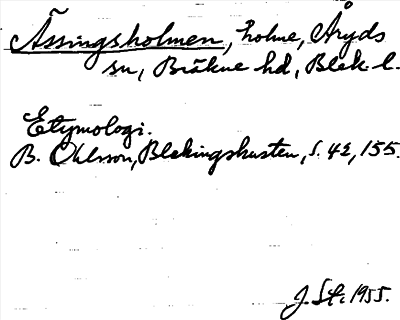 Ässingsholmen, holme, Åryds
sn, Bräkne hd, Blek. l.
Etymologi.
B. Ohlsson, Blekingskusten, s. 42, 155.
J. St. 1955.